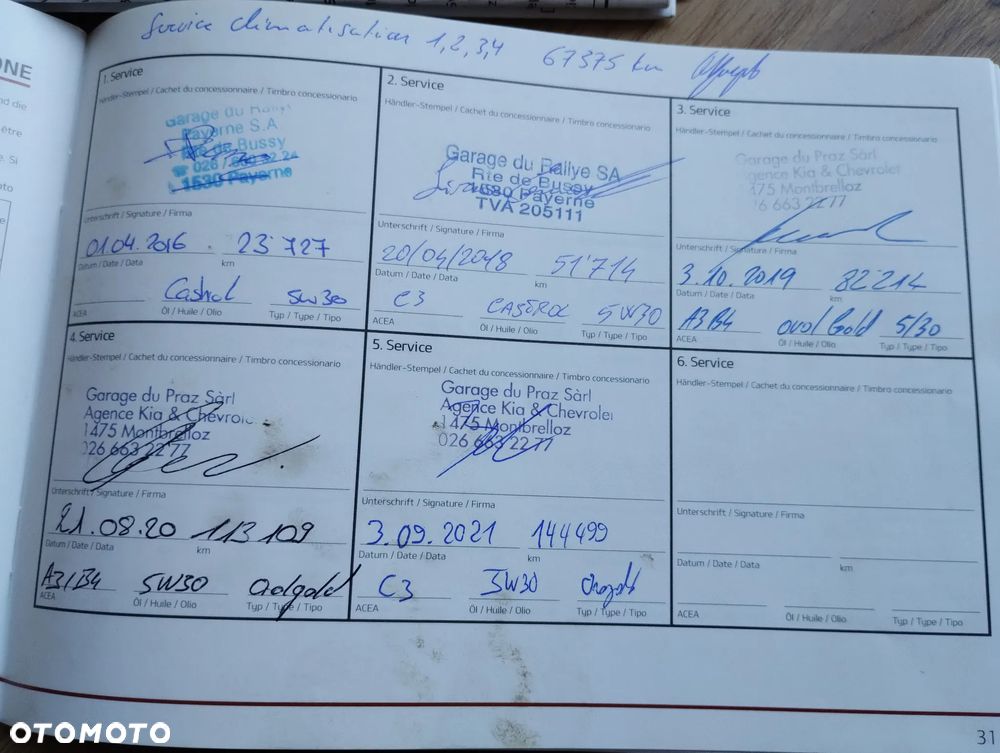 Service climatisation 1,2,3,4 67375 km
ONE
nd die
être
e. Si
oto
1. Service
Händler-Stempel / Cachet du concessionnaire / Timbro concessionario
Garage du Rallye
Payerne S.A
Rte de Bussy
1530 Payerne
Unterschrift / Signature / Firma
01.04.2016 23'727
Datum / Date / Data km
Castrol 5W30
ACEA Öl / Huile / Olio Typ / Type / Tipo
2. Service
Händler-Stempel / Cachet du concessionnaire / Timbro concessionario
Garage du Rallye SA
Rte de Bussy
1530 Payerne
TVA 205111
Unterschrift / Signature / Firma
20/04/2018 51'714
Datum / Date / Data km
C3 CASTROL 5W30
ACEA Öl / Huile / Olio Typ / Type / Tipo
3. Service
Händler-Stempel / Cachet du concessionnaire / Timbro concessionario
Garage du Praz Sàrl
Agence Kia & Chevrolet
1475 Montbrelloz
026 663 22 77
Unterschrift / Signature / Firma
3.10.2019 82'214
Datum / Date / Data km
A3B4 5/30
ACEA Öl / Huile / Olio Typ / Type / Tipo
4. Service
Händler-Stempel / Cachet du concessionnaire / Timbro concessionario
Garage du Praz Sàrl
Agence Kia & Chevrolet
1475 Montbrelloz
026 663 22 77
Unterschrift / Signature / Firma
21.08.20 113109
Datum / Date / Data km
A3/B4 5W30
ACEA Öl / Huile / Olio Typ / Type / Tipo
5. Service
Händler-Stempel / Cachet du concessionnaire / Timbro concessionario
Garage du Praz Sàrl
Agence Kia & Chevrolet
1475 Montbrelloz
026 663 22 77
Unterschrift / Signature / Firma
3.09.2021 144499
Datum / Date / Data km
C3 5W30
ACEA Öl / Huile / Olio Typ / Type / Tipo
6. Service
Händler-Stempel / Cachet du concessionnaire / Timbro concessionario
Unterschrift / Signature / Firma
Datum / Date / Data km
ACEA Öl / Huile / Olio Typ / Type / Tipo
31
OTOMOTO